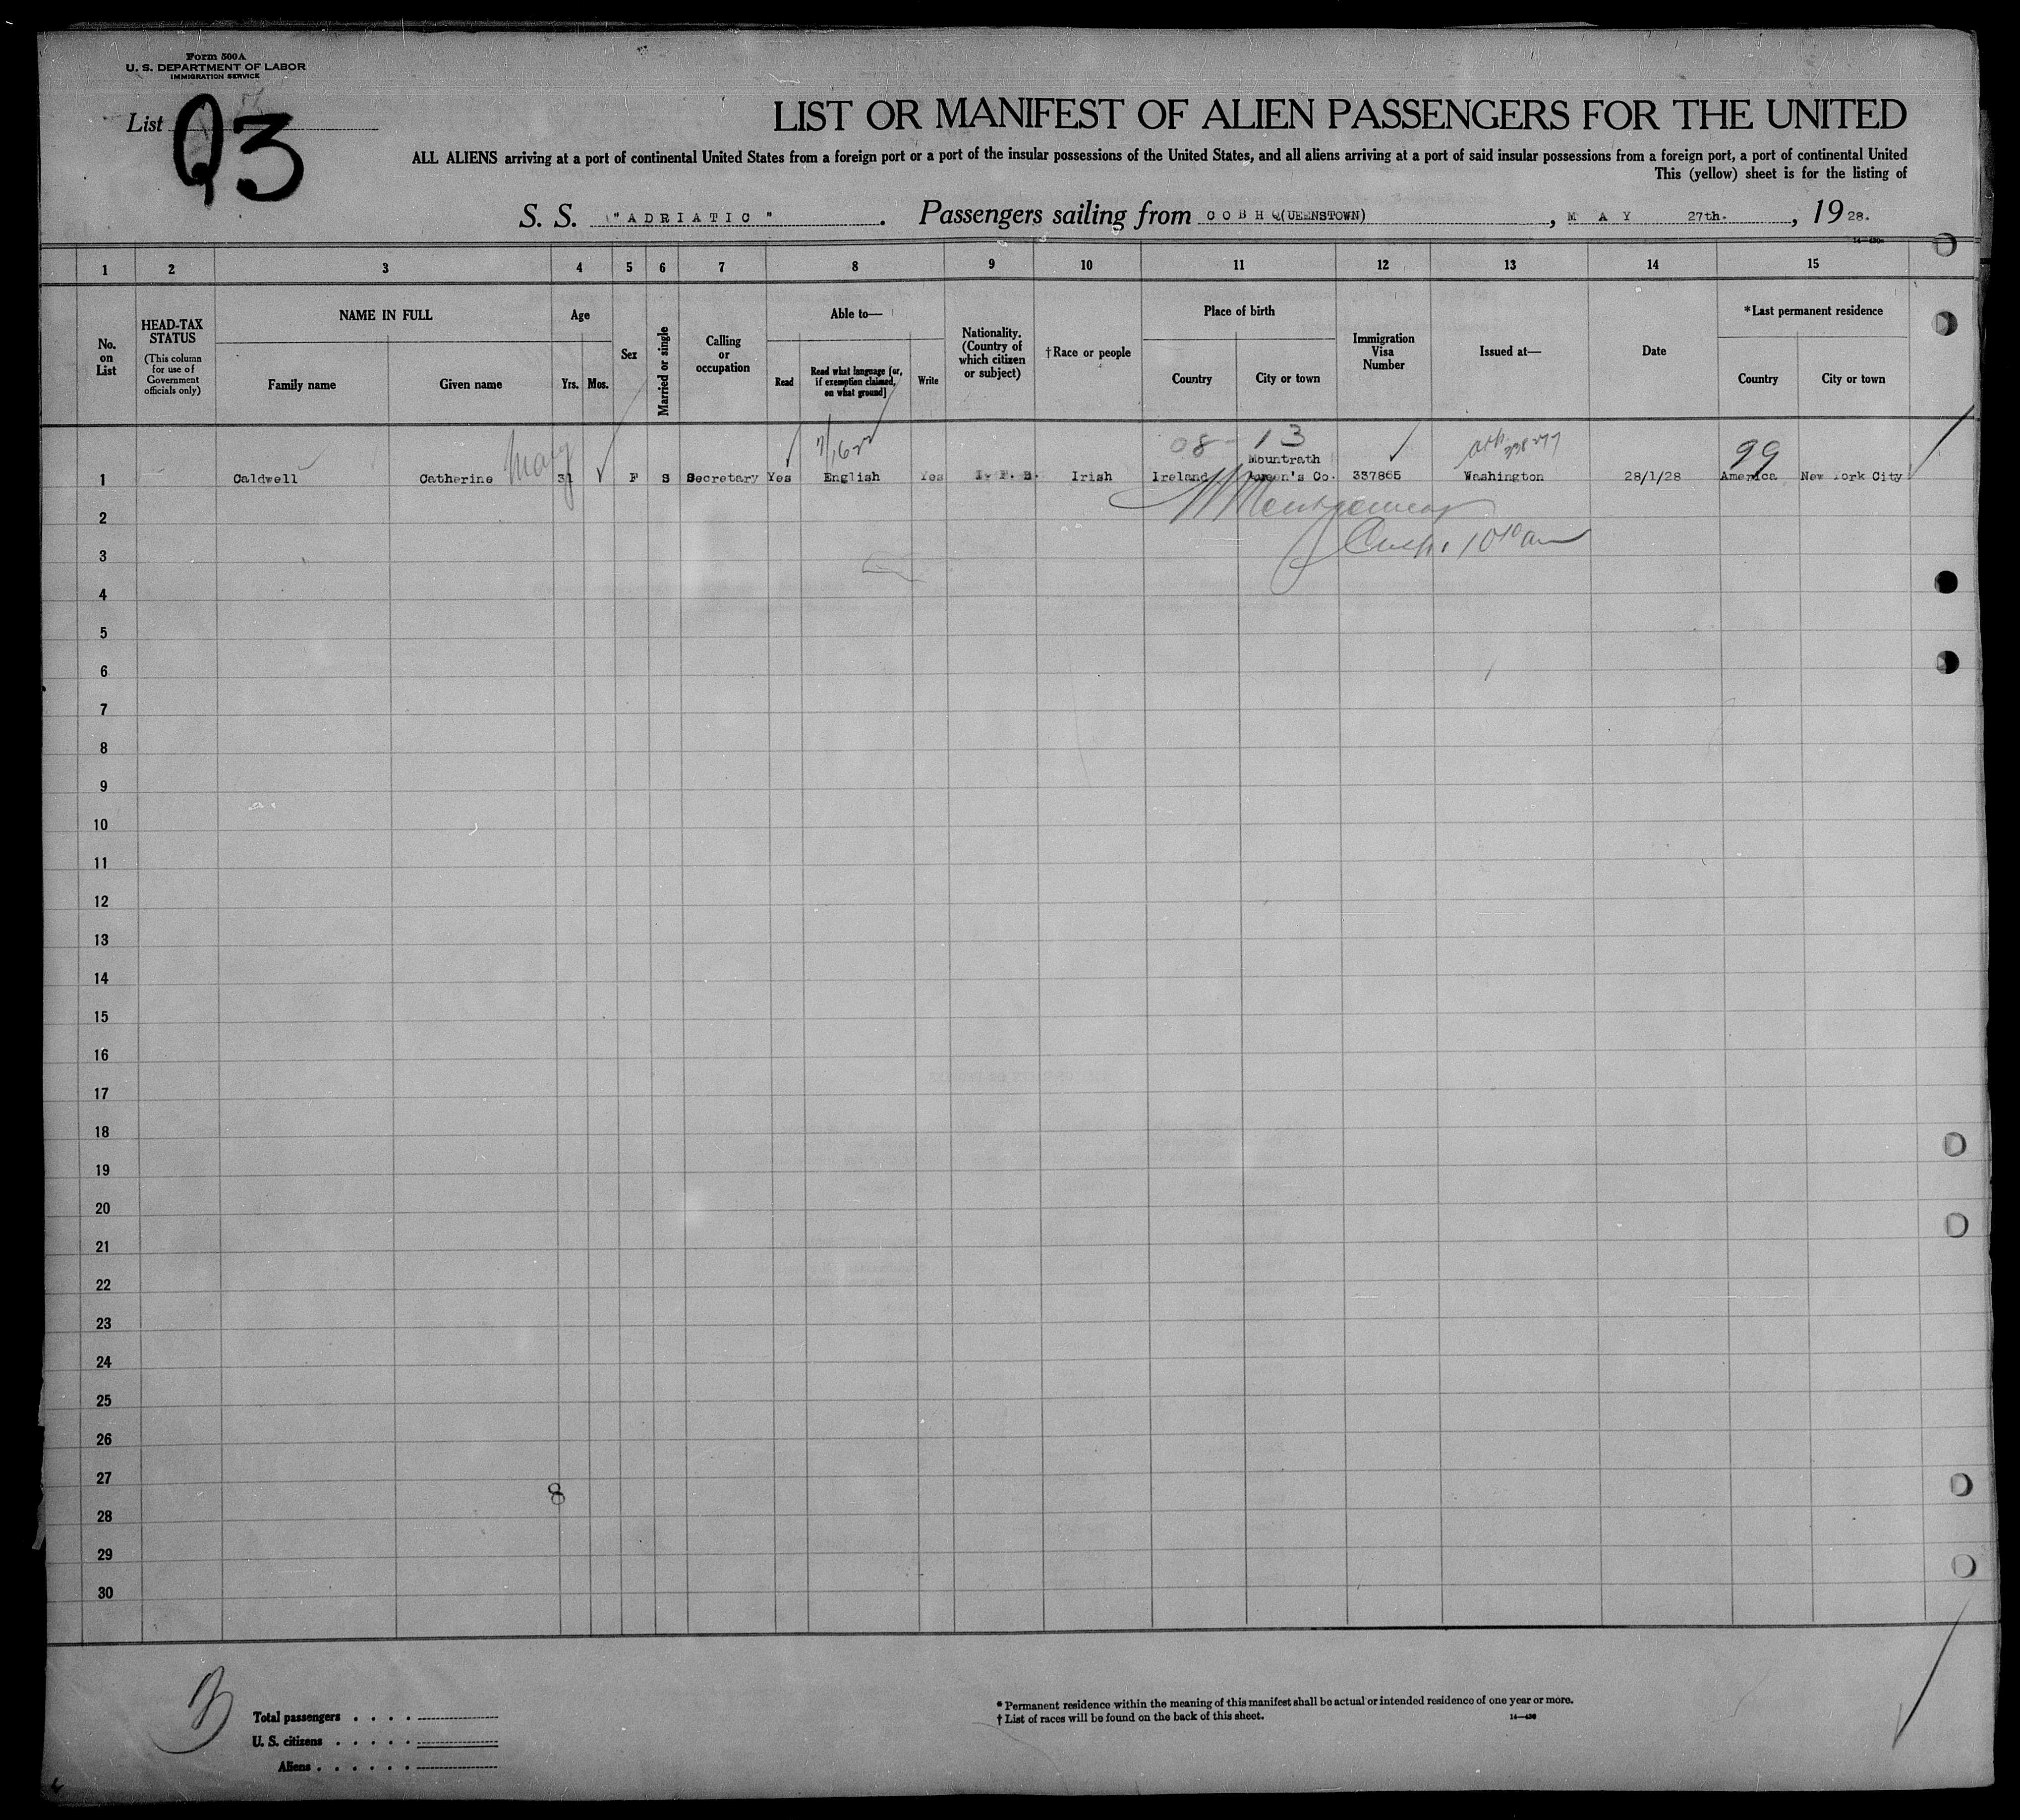 Form 500A
U. S. DEPARTMENT OF LABOR
IMMIGRATION SERVICE
List Q3
LIST OR MANIFEST OF ALIEN PASSENGERS FOR THE UNITED
ALL ALIENS arriving at a port of continental United States from a foreign port or a port of the insular possessions of the United States, and all aliens arriving at a port of said insular possessions from a foreign port, a port of continental United
This (yellow) sheet is for the listing of
S. S. "ADRIATIC". Passengers sailing from COBH Q(UEENSTOWN), MAY 27th., 1928.
1 2 3 4 5 6 7 8 9 10 11 12 13 14 15
No. on List
HEAD-TAX STATUS
(This column for use of Government officials only)
NAME IN FULL
Family name Given name
Age
Yrs. Mos.
Sex
Married or single
Calling or occupation
Able to—
Read
Read what language [or, if exemption claimed, on what ground]
Write
Nationality. (Country of which citizen or subject)
†Race or people
Place of birth
Country City or town
Immigration Visa Number
Issued at—
Date
*Last permanent residence
Country City or town
08 - 13
99
Mountrath
1 Caldwell Catherine Mary 31 F S Secretary Yes English Yes I. F. S. Irish Ireland Queen's Co. 337865 Washington 28/1/28 America New York City
2
3
4
5
6
7
8
9
10
11
12
13
14
15
16
17
18
19
20
21
22
23
24
25
26
27
8
28
29
30
* Permanent residence within the meaning of this manifest shall be actual or intended residence of one year or more.
† List of races will be found on the back of this sheet.
14—430
Total passengers
U. S. citizens
Aliens